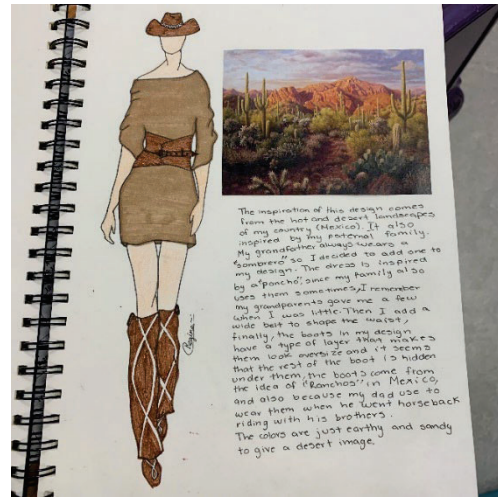 The inspiration of this design comes
from the hot and desert landscapes
of my country (Mexico). It also
inspired by my paternal family.
My grandfather always wears a
"sombrero" so I decided to add one to
my design. The dress is inspired
by a "poncho", since my family also
uses them sometimes, I remember
my grandparents gave me a few
when I was little. Then I add a
wide belt to shape the waist,
finally, the boots in my design
have a type of layer that makes
them look oversize and it seems
that the rest of the boot is hidden
under them, the boots come from
the idea of "Ranchos" in Mexico,
and also because my dad use to
wear them when he went horseback
riding with his brothers.
The colors are just earthy and sandy
to give a desert image.